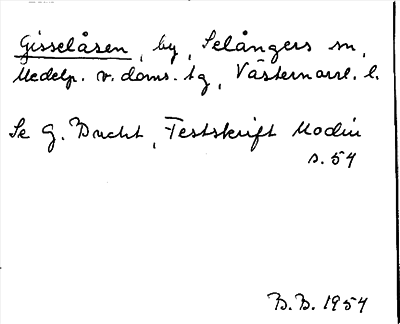 Gisselåsen, by, Selångers sn,
Medelp. v. doms. tg, Västernorrl. l.
Se G. Bucht, Festskrift Modin
s. 54
B.B. 1954